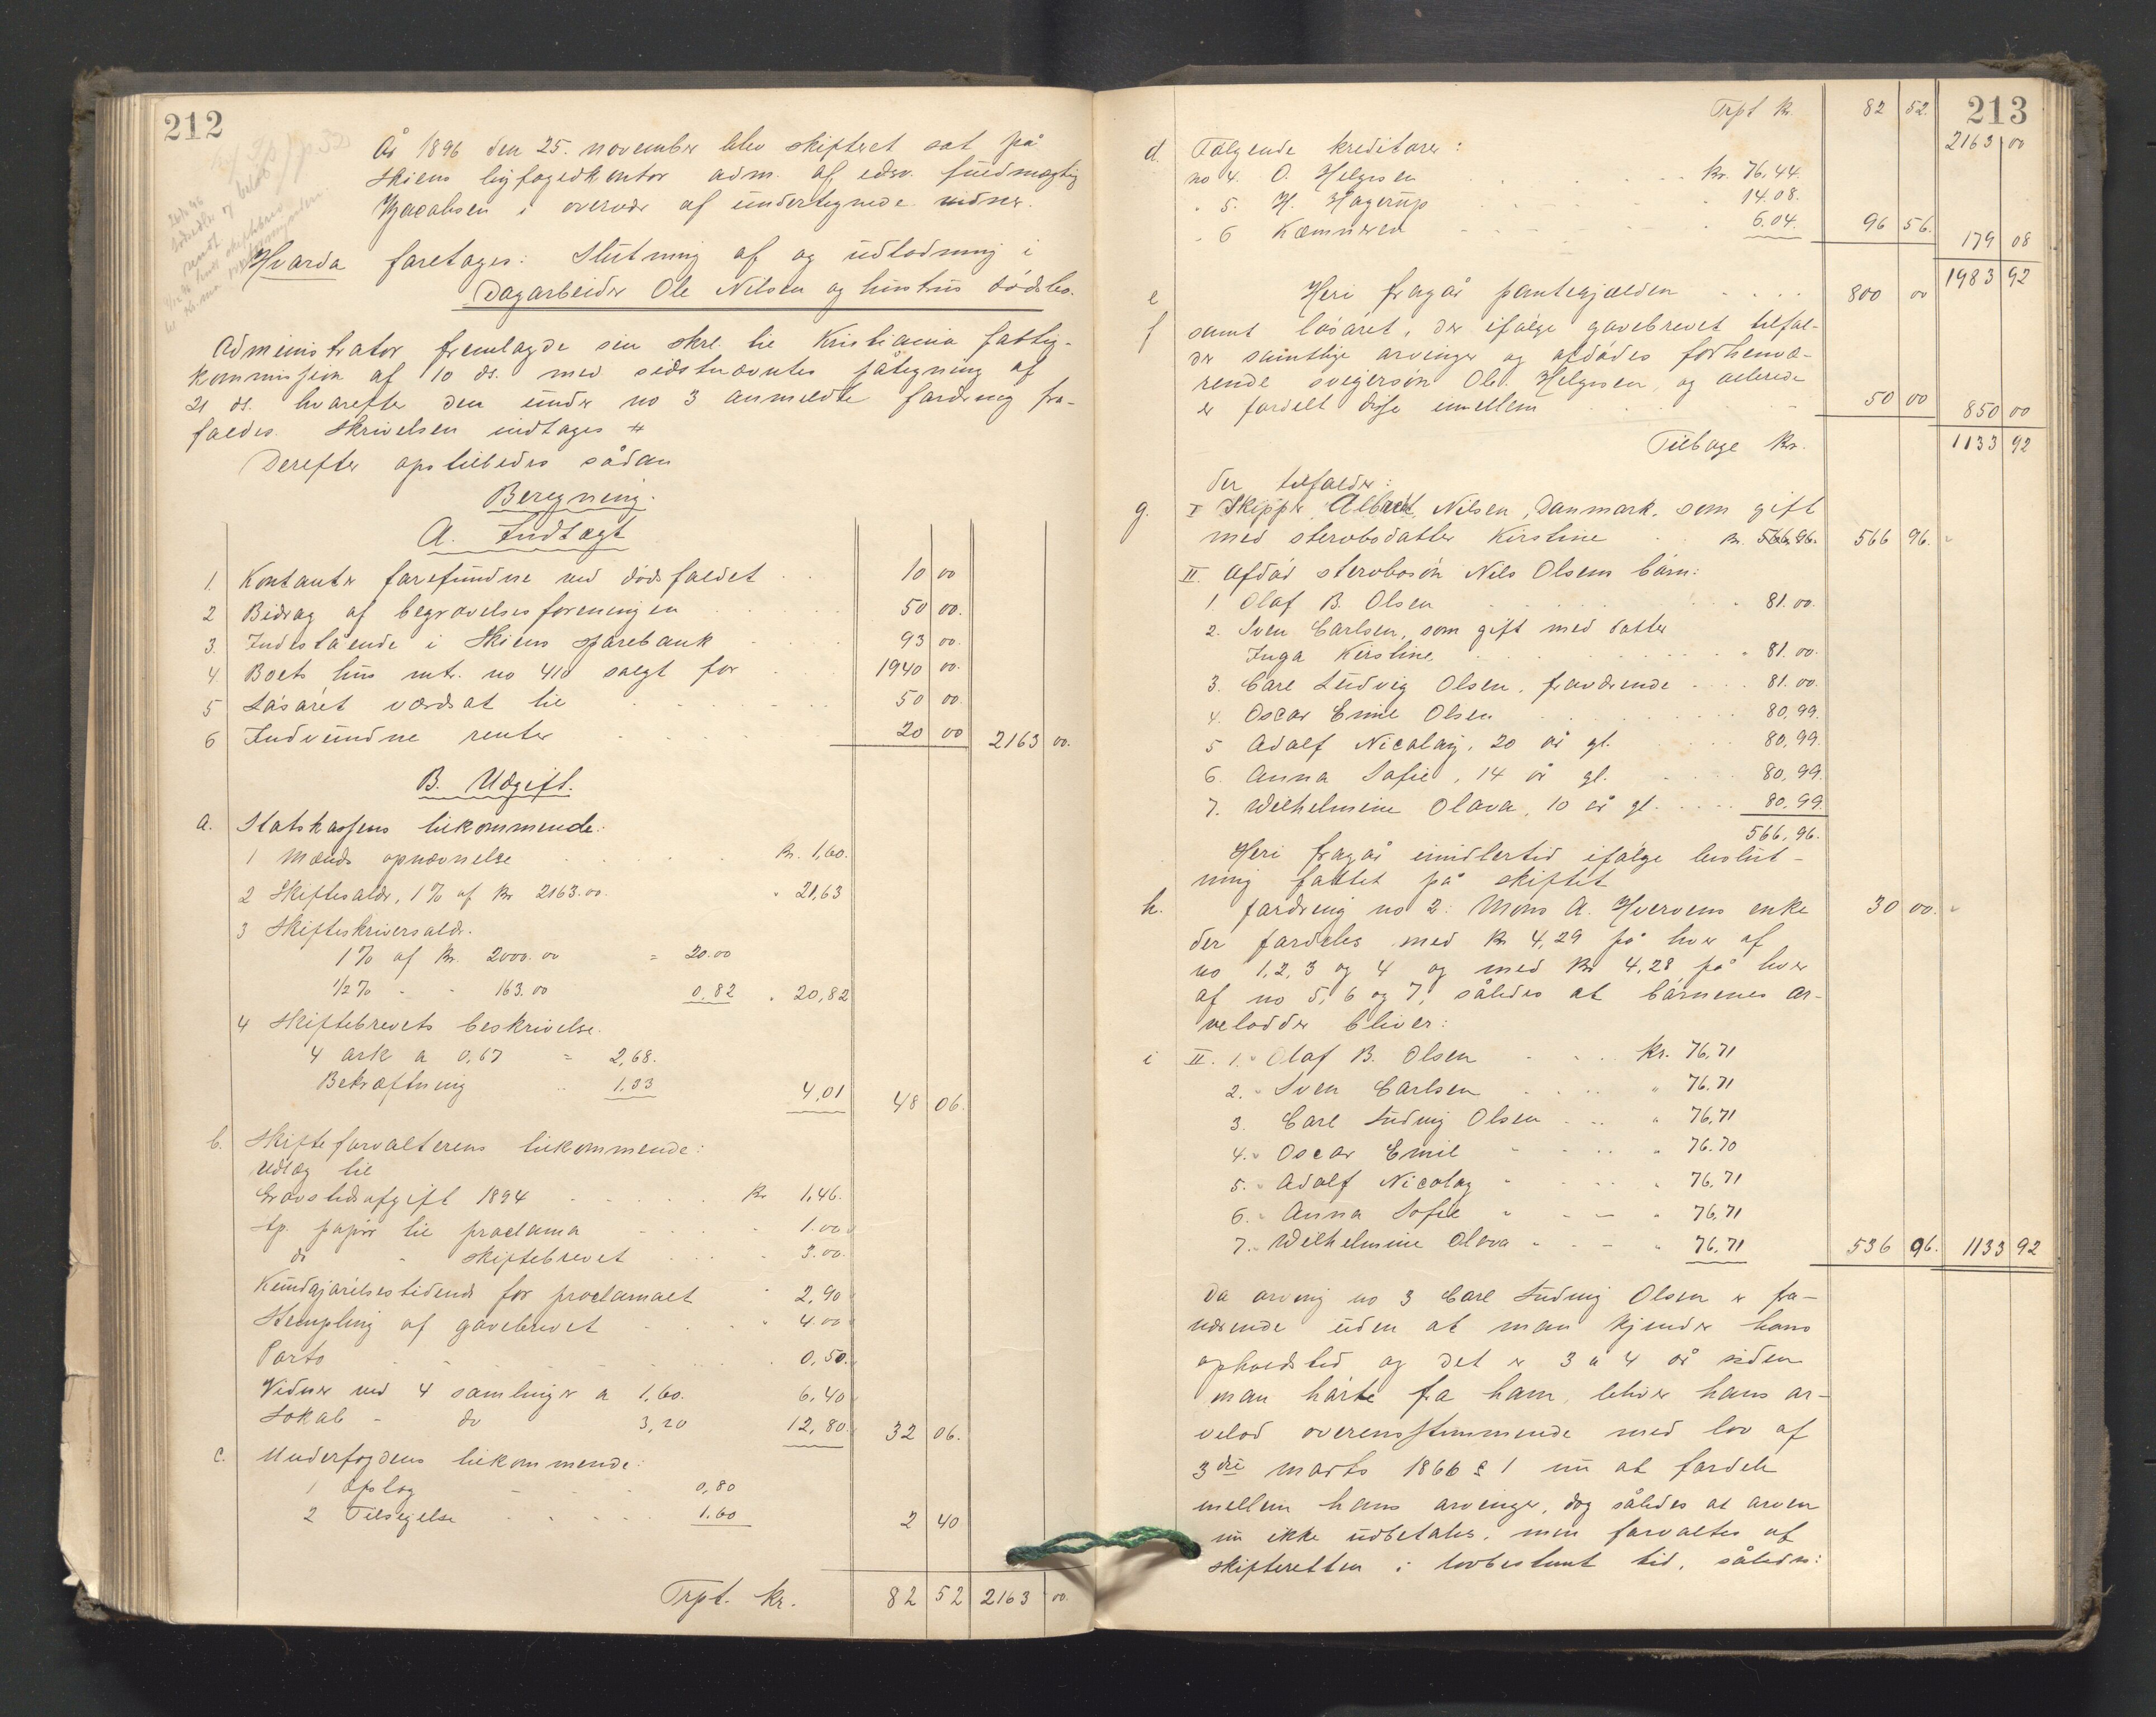 212
År 1896 den 25. november blev skifteret sat på
Skiens byfogedkontor adm. af edsv. fuldmægtig
Jacobsen i overvær af undertegnede vidner.
Hvorda foretages: Slutning af og udlodning i
Dagarbeider Ole Nilsen og hustrus dødsbo.
Administrator fremlagde sin skr. til Kristiania fattig-
kommission af 10 ds. med sidstnævntes påtegning af
21 ds. hvorefter den under no 3 anmeldte fordring fra-
faldes. Skrivelsen indtages #
Derefter opstilledes sådan
Beregning.
A. Indtægt
1. Kontanter forefundne ved dødsfaldet . . 10 00
2 Bidrag af begravelsesforeningen . . . 50 00.
3. Indestående i Skiens sparebank . . . 93 00.
4. Boets hus mtr. no 410 salgt for . . 1940 00.
5 Løsøret værdsat til . . . 50 00.
6 Indvundne renter . . . 20 00 2163 00.
B. Udgift.
a. Statskassens tilkommende:
1 Mænds opnævnelse . . . Kr. 1,60.
2 Skiftesaldr, 1% af Kr 2163.00. " 21,63
3 Skifteskriversaldr.
1% af Kr. 2000.00 = 20.00
1/2% - - 163.00 0,82 " 20,82
4 Skiftebrevets beskrivelse.
4 ark a 0,67 = 2,68.
Bekræftning " 1.33 4,01 48 06.
b. Skifteforvalterens tilkommende:
Udlæg til
Gravstedsafgift 1894 . . . Kr 1,46.
st. papir til proclama . . . 1.00
do " skiftebrevet . . . 3.00.
Kundgjørelsestidende for proclamaet " 2,90
Stempling af gavebrevet . . . " 4.00
Porto . . . 0,50.
Vidner ved 4 samlinger a 1,60. 6,40
Lokale - do 3,20 12,80. 32 06.
c. Underfogdens tilkommende:
1 Opslag - - - 0,80
2 Tilsigelse . . . 1.60 2 40
Trpt. kr. 82 52 2163 00.
213
Trpt kr. 82 52.
2163 00
d. Følgende kreditorer:
no 4. O. Helgesen . . . Kr. 76,44.
" 5. H. Hagerup . . . " 14.08.
" 6 Kæmneren . . . 6.04. 96 56. 179 08
1983 92
e Heri fragår pantegjælden . . . . 800 00
f samt løsøret, der ifølge gavebrevet tilfal-
der samtlige arvinger og afdødes forhenvæ-
rende svigersøn Ole Helgesen, og allerede
er fordelt disse imellem . . . 50 00 850 00
Tilbage Kr. 1133 92
der tilfalder:
g. I Skipper Albret Nilsen, Danmark, som gift
med stervbodatter Kirstine . . Kr. 566,96. 566 96.
II. Afdød stervbosøn Nils Olsens børn:
1. Olaf B. Olsen . . . " 81.00.
2. Sven Carlsen, som gift med datter
Inga Kirstine. . . . " 81.00.
3. Carl Ludvig Olsen, fraværende . . . 81.00.
4. Oscar Emil Olsen . . . 80,99.
5 Adolf Nicolay, 20 år gl. . . . 80,99.
6. Anna Sofie, 14 år gl. . . . 80,99.
7. Wilhelmine Olava, 10 år gl. . . . 80.99.
566,96.
Heri fragår imidlertid ifølge beslut-
ning fattet på skiftet
h. fordring no 2: Mons A. Hvervens enke 30 00.
der fordeles med Kr 4,29 på hver af
no 1, 2, 3 og 4 og med Kr 4,28 på hver
af no 5, 6 og 7, således at børnenes ar-
velodder bliver:
i II. 1. Olaf B. Olsen - . . Kr. 76,71
2. Sven Carlsen . . . " 76.71
3. Carl Ludvig Olsen . . . " 76,71
4. Oscar Emil - . . . " 76.70
5. Adolf Nicolay - . . . " 76,71
6. Anna Sofie " - - " 76,71
7. Wilhelmine Olava - - - " 76,71 536 96. 1133 92
Da arving no 3 Carl Ludvig Olsen er fra-
værende uden at man kjender hans
opholdsted og det er 3 a 4 år siden
man hørte fra ham, bliver hans ar-
velod overensstemmende med lov af
3die marts 1866 § 1 nu at fordele
mellem hans arvinger, dog således at arven
nu ikke udbetales, men forvaltes af
skifteretten i lovbestemt tid, således: